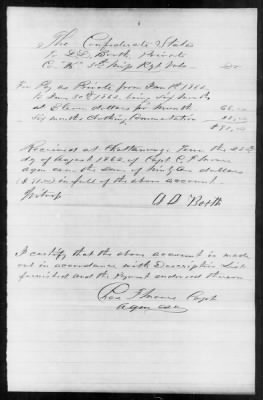 The Confederate States
To D.D. Booth, Private
Co "K" 5th Miss Regt Vols
For Pay as Private from Jan 1st 1862
to June 30th 1862 being Six Months
at Eleven dollars per Month 66.00
Six months Clothing Commutation
Received at Chattanooga Tenn the
day of August 1862 of Capt
agm csa the sum of Ninety One dollars
in full of the above account.
D D Booth
I certify that the above account is made
out in accordance with Descriptive List
furnished and the Payment endorsed thereon
Capt